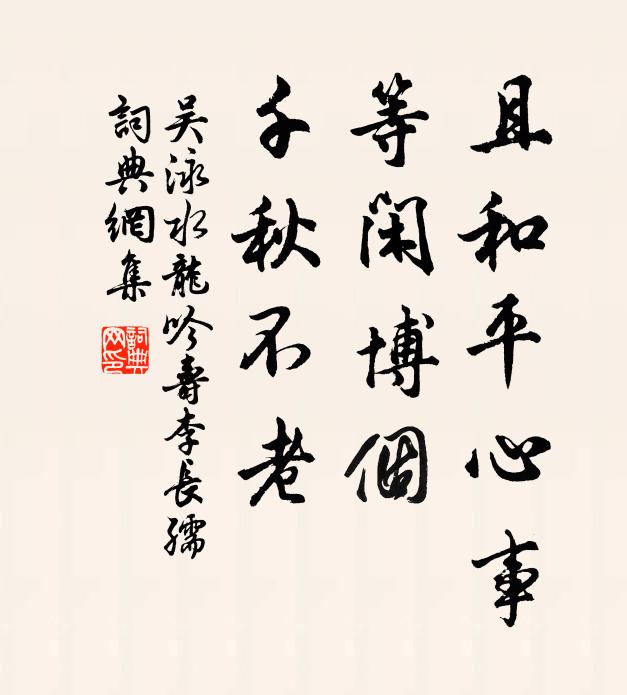 且和平心事
等閑博個
千秋不老
吴泳水龍吟壽李長孺
詞典網集
詞典网印